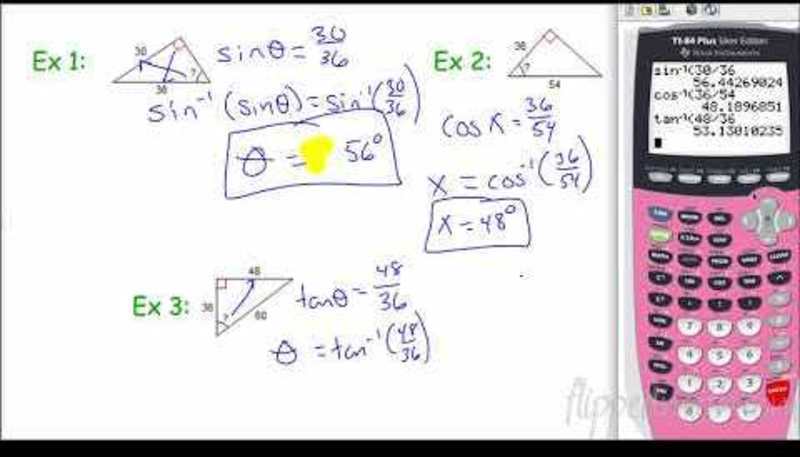 Ex 1:
30
36
?
sinθ = 30/36
sin⁻¹(sinθ) = sin⁻¹(30/36)
θ = 56°
Ex 2:
36
?
54
cos x = 36/54
x = cos⁻¹(36/54)
x = 48°
Ex 3:
48
36
?
60
tanθ = 48/36
θ = tan⁻¹(48/36)
TI-84 Plus Silver Edition
TEXAS INSTRUMENTS
sin⁻¹(30/36
56.44269024
cos⁻¹(36/54
48.1896851
tan⁻¹(48/36
53.13010235
7 8 9
4 5 6
1 2 3
0